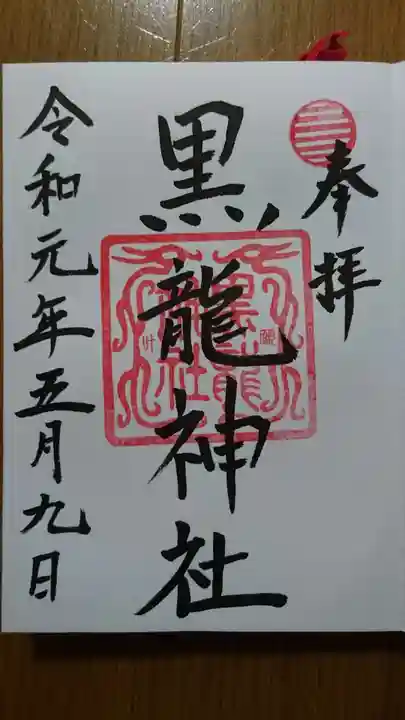 奉拝
黒龍神社
令和元年五月九日